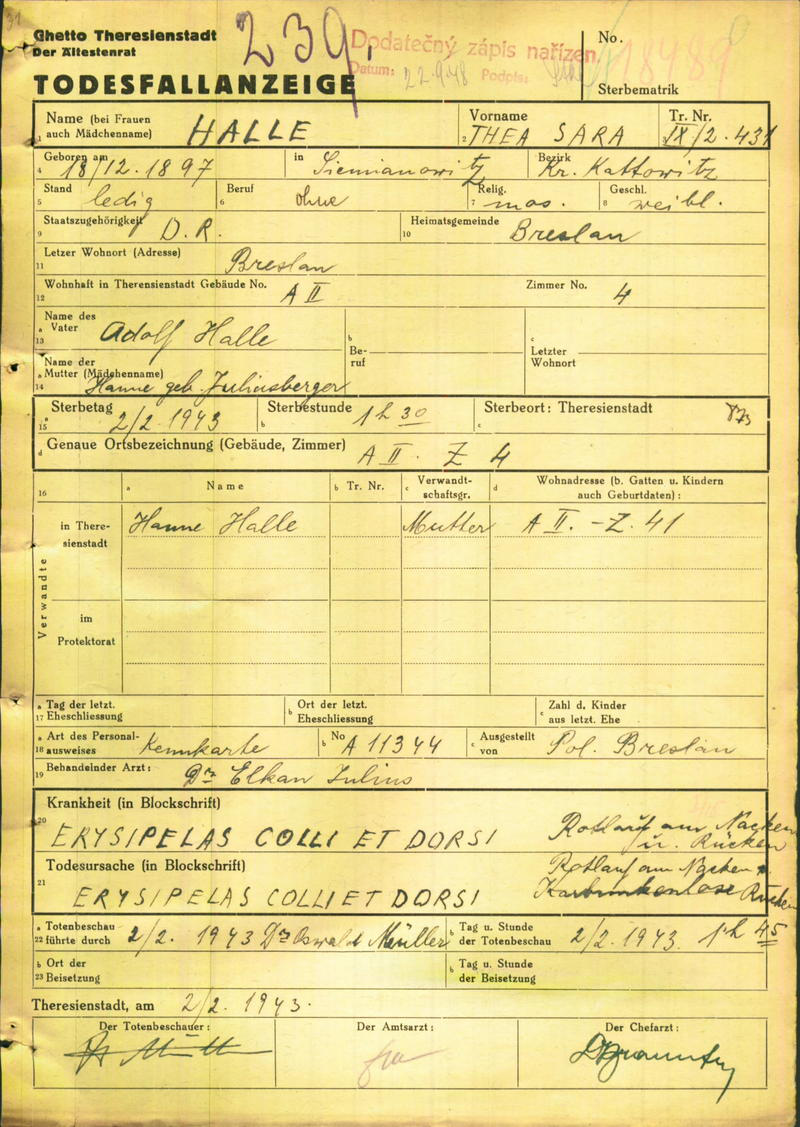 31
Ghetto Theresienstadt
Der Ältestenrat
239.
Dodatečný zápis nařízen.
Datum: 22.9.48 Podpis:
No. 18489
Sterbematrik
TODESFALLANZEIGE
Name (bei Frauen auch Mädchenname) HALLE
Vorname THEA SARA
Tr. Nr. IX/2-431
1 2 3
4 Geboren am 18/12.1897 in Siemianowitz Bezirk Kr. Kattowitz
5 Stand ledig 6 Beruf ohne 7 Relig. mos. 8 Geschl. weibl.
9 Staatszugehörigkeit D.R. 10 Heimatsgemeinde Breslau
11 Letzer Wohnort (Adresse) Breslau
12 Wohnhaft in Therensienstadt Gebäude No. A II Zimmer No. 4
13 a Name des Vater Adolf Halle
b Beruf
c Letzter Wohnort
14 a Name der Mutter (Mädchenname) Hanne geb. Juliusberger
15 a Sterbetag 2/2.1943 b Sterbestunde 1h30 c Sterbeort: Theresienstadt
d Genaue Ortsbezeichnung (Gebäude, Zimmer) A II. Z 4
16 a Name b Tr. Nr. c Verwandtschaftsgr. d Wohnadresse (b. Gatten u. Kindern auch Geburtdaten):
Verwandte
in Theresienstadt Hanne Halle Mutter A II. - Z. 41
im Protektorat
17 a Tag der letzt. Eheschliessung b Ort der letzt. Eheschliessung c Zahl d. Kinder aus letzt. Ehe
18 a Art des Personalausweises Kennkarte b No A 11344 c Ausgestellt von Pol. Breslau
19 Behandelnder Arzt: Dr Elkan Julius
Krankheit (in Blockschrift)
20 ERYSIPELAS COLLI ET DORSI Rotlauf am Nacken u. Rücken
Todesursache (in Blockschrift)
21 ERYSIPELAS COLLI ET DORSI Rotlauf am Nacken u. Rücken
22 a Totenbeschau führte durch 2/2. 1943 Dr Oswald Müller b Tag u. Stunde der Totenbeschau 2/2.1943. 1h 45
23 b Ort der Beisetzung b Tag u. Stunde der Beisetzung
Theresienstadt, am 2/2.1943.
Der Totenbeschauer: Der Amtsarzt: Der Chefarzt: